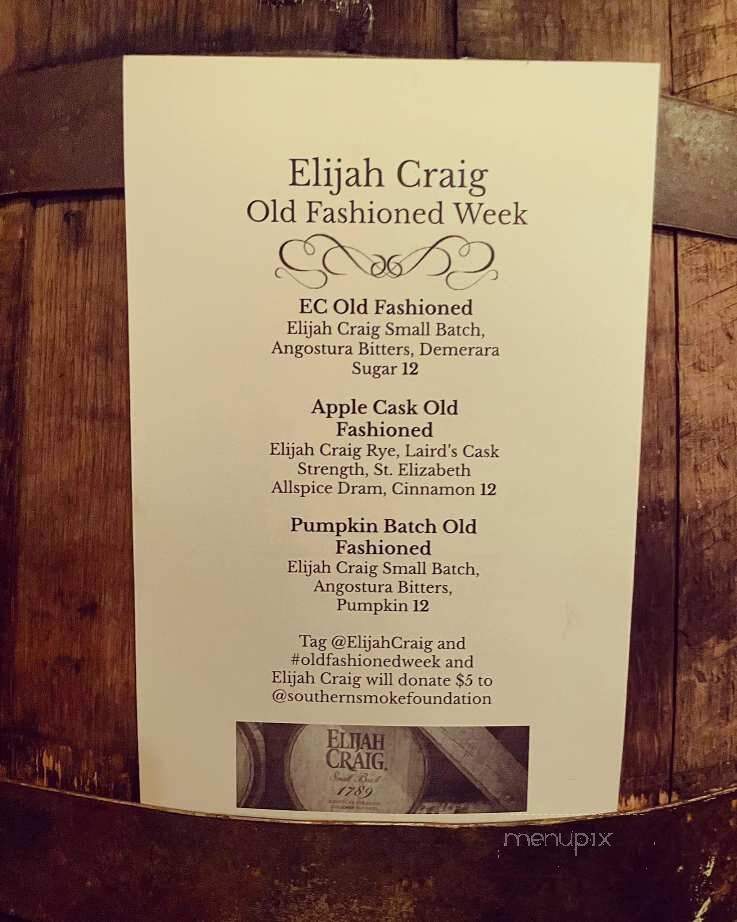 Elijah Craig
Old Fashioned Week
EC Old Fashioned
Elijah Craig Small Batch,
Angostura Bitters, Demerara
Sugar 12
Apple Cask Old
Fashioned
Elijah Craig Rye, Laird's Cask
Strength, St. Elizabeth
Allspice Dram, Cinnamon 12
Pumpkin Batch Old
Fashioned
Elijah Craig Small Batch,
Angostura Bitters,
Pumpkin 12
Tag @ElijahCraig and
#oldfashionedweek and
Elijah Craig will donate $5 to
@southernsmokefoundation
ELIJAH
CRAIG.
Small Batch
1789
menupix